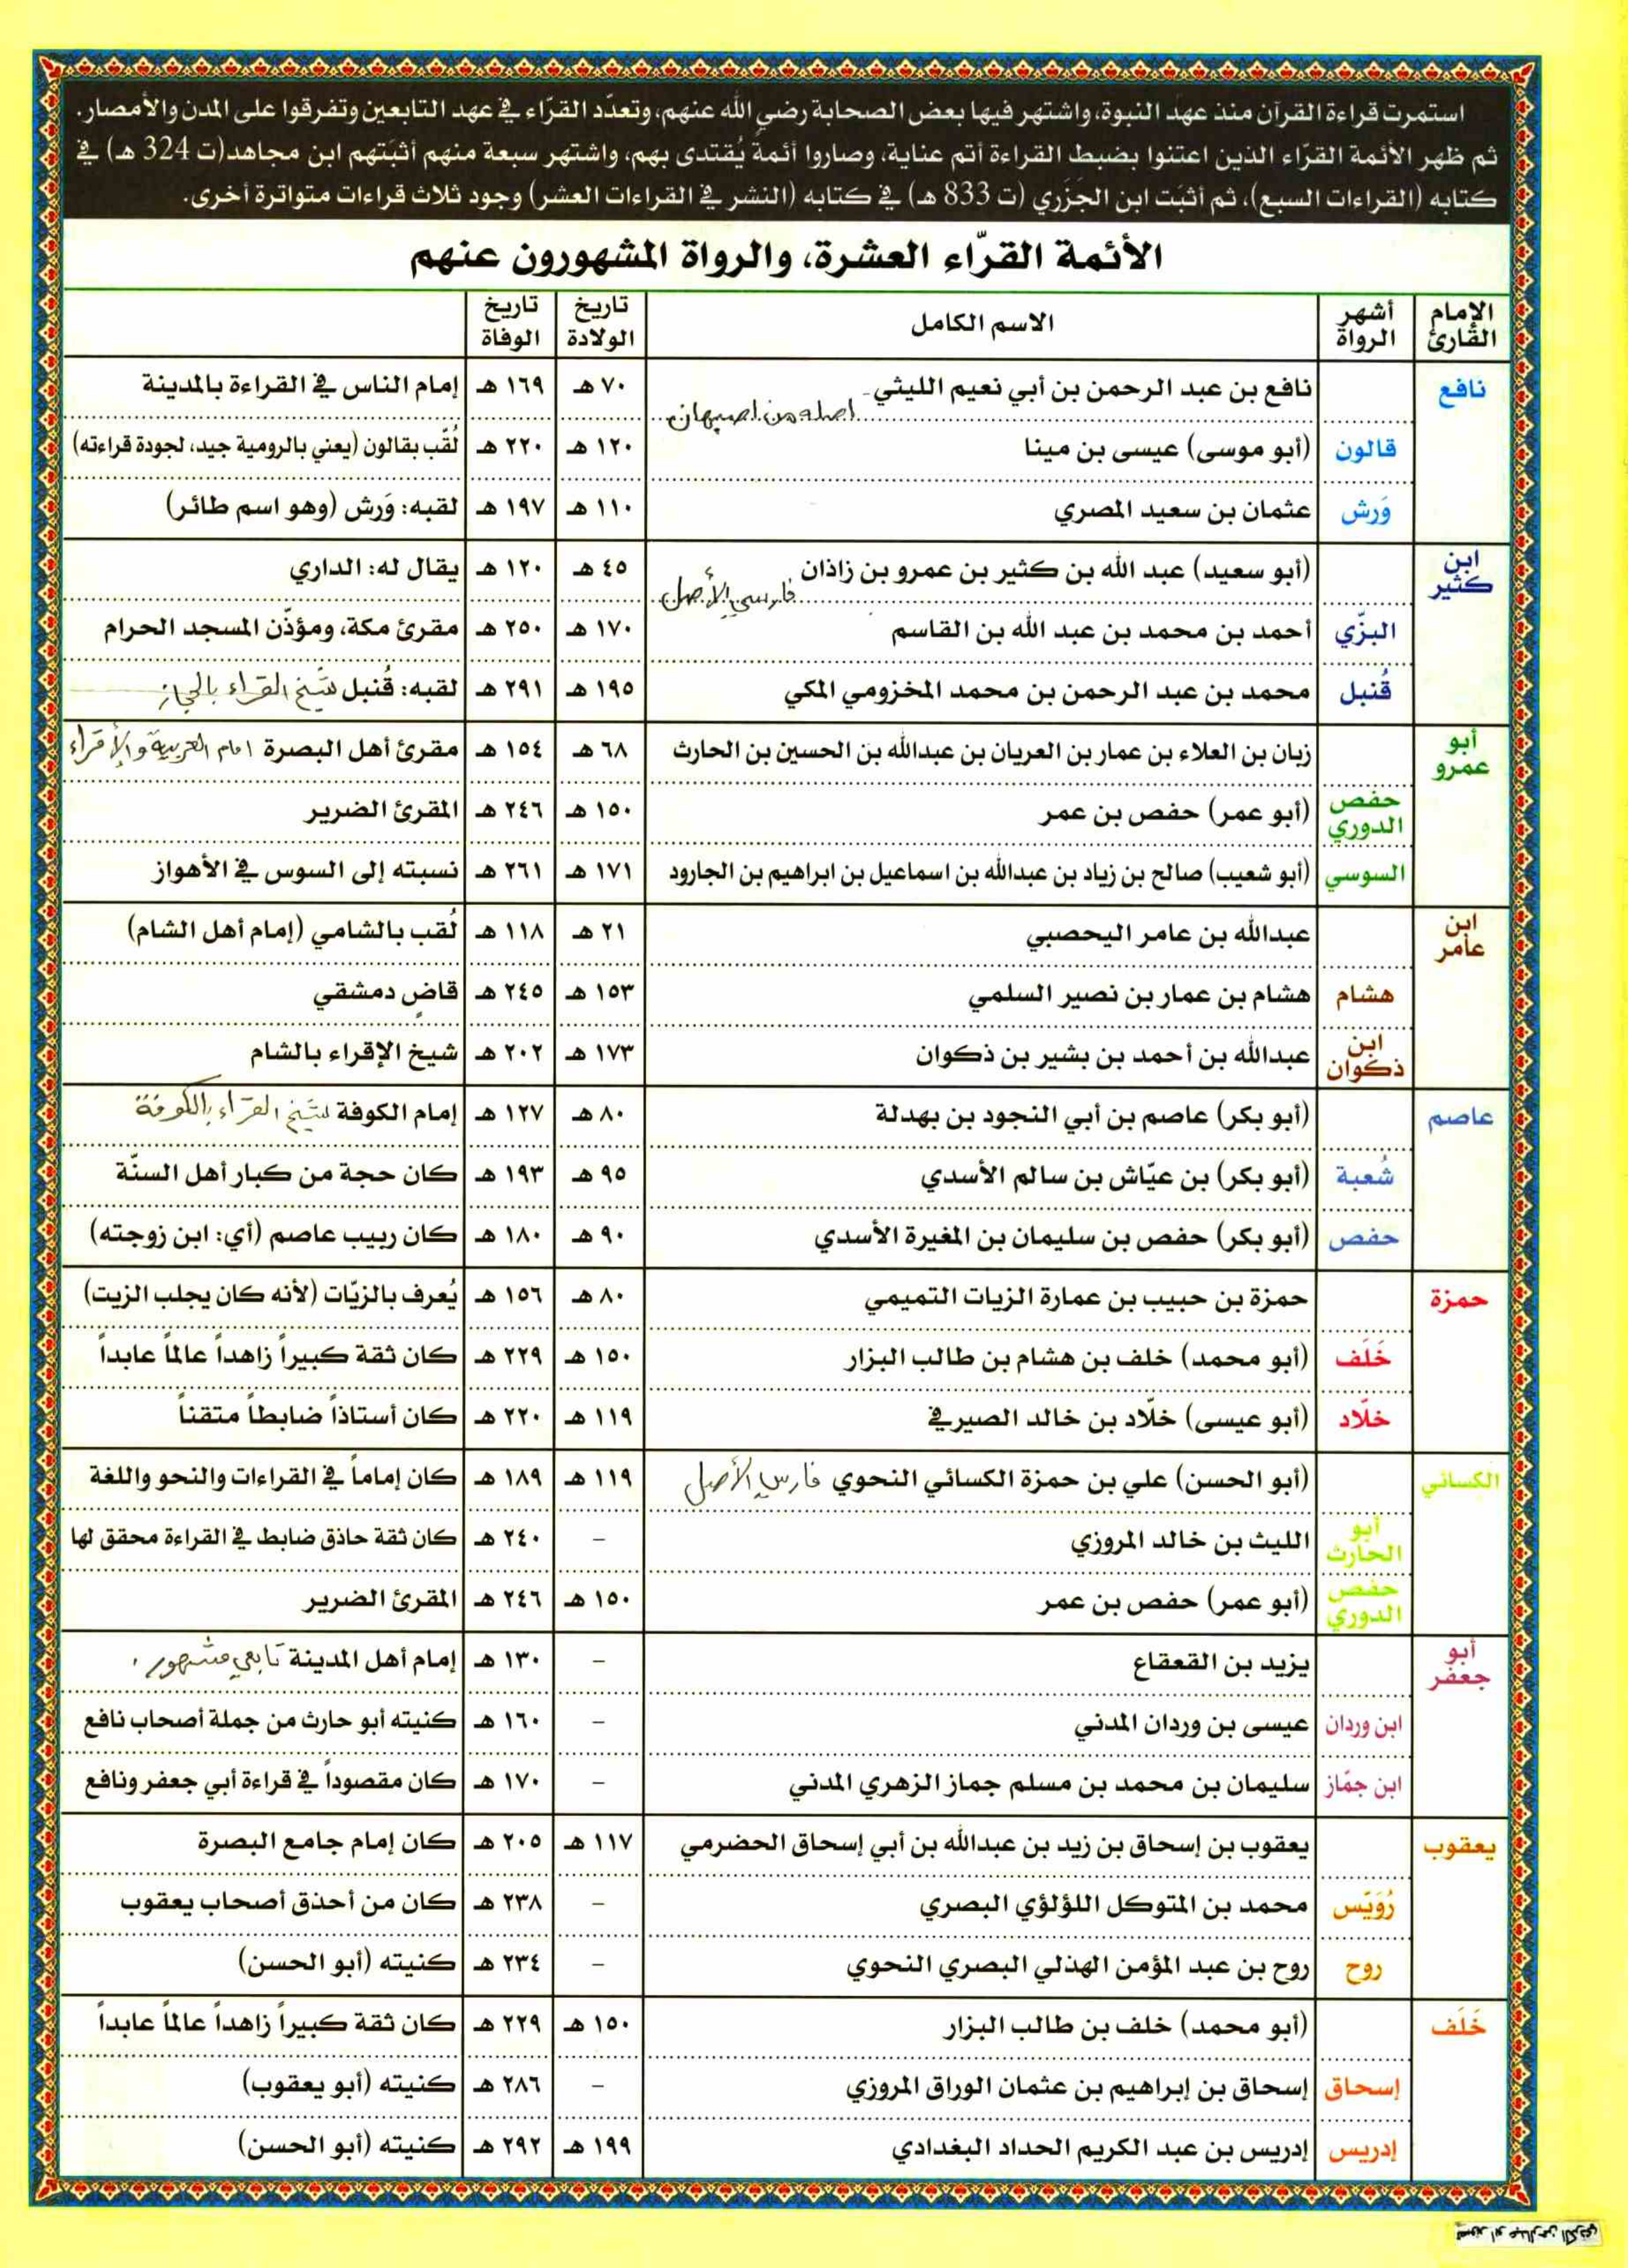 استمرت قراءة القرآن منذ عهد النبوة، واشتهر فيها بعض الصحابة رضي الله عنهم، وتعدّد القرّاء في عهد التابعين وتفرقوا على المدن والأمصار.
ثم ظهر الأئمة القرّاء الذين اعتنوا بضبط القراءة أتم عناية، وصاروا أئمةً يُقتدى بهم، واشتهر سبعة منهم أثبتهم ابن مجاهد (ت 324 هـ) في
كتابه (القراءات السبع)، ثم أثبَت ابن الجَزَري (ت 833 هـ) في كتابه (النشر في القراءات العشر) وجود ثلاث قراءات متواترة أخرى.
الأئمة القرّاء العشرة، والرواة المشهورون عنهم
الإمام القارئ أشهر الرواة الاسم الكامل تاريخ الولادة تاريخ الوفاة
نافع نافع بن عبد الرحمن بن أبي نعيم الليثي - اصله من اصبهان ٧٠ هـ ١٦٩ هـ إمام الناس في القراءة بالمدينة
قالون (أبو موسى) عيسى بن مينا ١٢٠ هـ ٢٢٠ هـ لُقّب بقالون (يعني بالرومية جيد، لجودة قراءته)
وَرش عثمان بن سعيد المصري ١١٠ هـ ١٩٧ هـ لقبه: وَرش (وهو اسم طائر)
ابن كثير (أبو سعيد) عبد الله بن كثير بن عمرو بن زاذان فارسي الأصل ٤٥ هـ ١٢٠ هـ يقال له: الداري
البزّي أحمد بن محمد بن عبد الله بن القاسم ١٧٠ هـ ٢٥٠ هـ مقرئ مكة، ومؤذّن المسجد الحرام
قُنبل محمد بن عبد الرحمن بن محمد المخزومي المكي ١٩٥ هـ ٢٩١ هـ لقبه: قُنبل شيخ القراء بالحجاز
أبو عمرو زبان بن العلاء بن عمار بن العريان بن عبدالله بن الحسين بن الحارث ٦٨ هـ ١٥٤ هـ مقرئ أهل البصرة امام العربية والإقراء
حفص الدوري (أبو عمر) حفص بن عمر ١٥٠ هـ ٢٤٦ هـ المقرئ الضرير
السوسي (أبو شعيب) صالح بن زياد بن عبدالله بن اسماعيل بن ابراهيم بن الجارود ١٧١ هـ ٢٦١ هـ نسبته إلى السوس في الأهواز
ابن عامر عبدالله بن عامر اليحصبي ٢١ هـ ١١٨ هـ لُقب بالشامي (إمام أهل الشام)
هشام هشام بن عمار بن نصير السلمي ١٥٣ هـ ٢٤٥ هـ قاضٍ دمشقي
ابن ذكوان عبدالله بن أحمد بن بشير بن ذكوان ١٧٣ هـ ٢٠٢ هـ شيخ الإقراء بالشام
عاصم (أبو بكر) عاصم بن أبي النجود بن بهدلة ٨٠ هـ ١٢٧ هـ إمام الكوفة شيخ القرّاء بالكوفة
شُعبة (أبو بكر) بن عيّاش بن سالم الأسدي ٩٥ هـ ١٩٣ هـ كان حجة من كبار أهل السنّة
حفص (أبو بكر) حفص بن سليمان بن المغيرة الأسدي ٩٠ هـ ١٨٠ هـ كان ربيب عاصم (أي: ابن زوجته)
حمزة حمزة بن حبيب بن عمارة الزيات التميمي ٨٠ هـ ١٥٦ هـ يُعرف بالزيّات (لأنه كان يجلب الزيت)
خَلَف (أبو محمد) خلف بن هشام بن طالب البزار ١٥٠ هـ ٢٢٩ هـ كان ثقة كبيراً زاهداً عالماً عابداً
خلّاد (أبو عيسى) خلّاد بن خالد الصيرفي ١١٩ هـ ٢٢٠ هـ كان أستاذاً ضابطاً متقناً
الكسائي (أبو الحسن) علي بن حمزة الكسائي النحوي فارسي الأصل ١١٩ هـ ١٨٩ هـ كان إماماً في القراءات والنحو واللغة
أبو الحارث الليث بن خالد المروزي – ٢٤٠ هـ كان ثقة حاذق ضابط في القراءة محقق لها
حفص الدوري (أبو عمر) حفص بن عمر ١٥٠ هـ ٢٤٦ هـ المقرئ الضرير
أبو جعفر يزيد بن القعقاع – ١٣٠ هـ إمام أهل المدينة تابعي مشهور.
ابن وردان عيسى بن وردان المدني – ١٦٠ هـ كنيته أبو حارث من جملة أصحاب نافع
ابن جمّاز سليمان بن محمد بن مسلم جماز الزهري المدني – ١٧٠ هـ كان مقصوداً في قراءة أبي جعفر ونافع
يعقوب يعقوب بن إسحاق بن زيد بن عبدالله بن أبي إسحاق الحضرمي ١١٧ هـ ٢٠٥ هـ كان إمام جامع البصرة
رُوَيَس محمد بن المتوكل اللؤلؤي البصري – ٢٣٨ هـ كان من أحذق أصحاب يعقوب
روح روح بن عبد المؤمن الهذلي البصري النحوي – ٢٣٤ هـ كنيته (أبو الحسن)
خَلَف (أبو محمد) خلف بن طالب البزار ١٥٠ هـ ٢٢٩ هـ كان ثقة كبيراً زاهداً عالماً عابداً
إسحاق إسحاق بن إبراهيم بن عثمان الوراق المروزي – ٢٨٦ هـ كنيته (أبو يعقوب)
إدريس إدريس بن عبد الكريم الحداد البغدادي ١٩٩ هـ ٢٩٢ هـ كنيته (أبو الحسن)